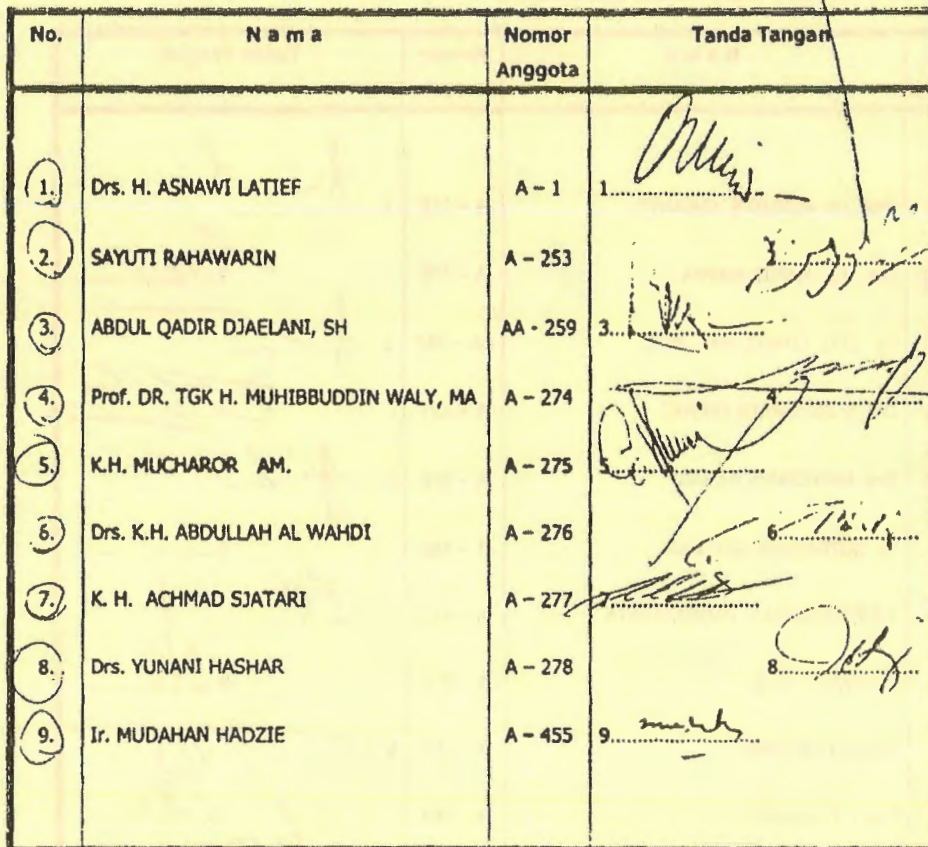 No. N a m a Nomor Anggota Tanda Tangan
1. Drs. H. ASNAWI LATIEF A – 1 1..............................
2. SAYUTI RAHAWARIN A – 253
3. ABDUL QADIR DJAELANI, SH AA - 259 3..............................
4. Prof. DR. TGK H. MUHIBBUDDIN WALY, MA A – 274 4..............................
5. K.H. MUCHAROR AM. A – 275 5..............................
6. Drs. K.H. ABDULLAH AL WAHDI A – 276 6..............................
7. K. H. ACHMAD SJATARI A – 277
8. Drs. YUNANI HASHAR A – 278 8..............................
9. Ir. MUDAHAN HADZIE A – 455 9..............................